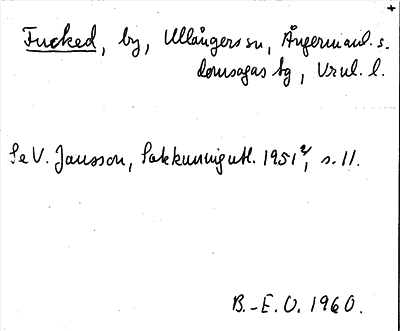 Fucked, by, Ullångers sn, Ångermanl. s.
domsagas tg, Vrnl. l.
Se V. Jansson, Sakkunnigutl. 1951 2/1, s. 11.
B.-E. O. 1960.